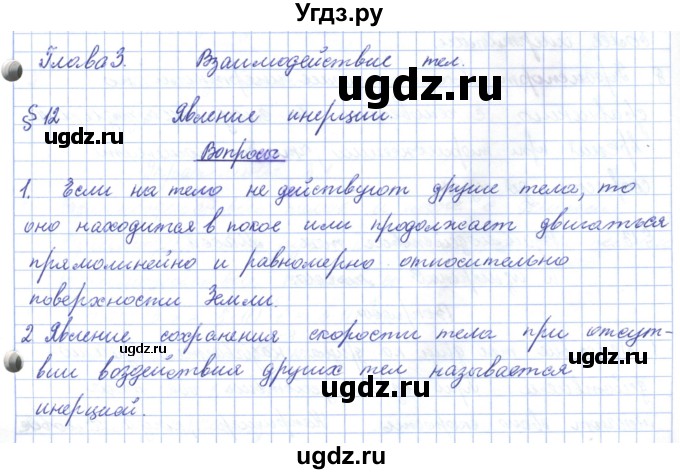 Угдз.ру
Глава 3. Взаимодействие тел.
§ 12 Явление инерции.
Вопросы
1. Если на тело не действуют другие тела, то
оно находится в покое или продолжает двигаться
прямолинейно и равномерно относительно
поверхности Земли.
2 Явление сохранения скорости тела при отсут-
вии воздействия других тел называется
инерцией.
ugdz.ru
ugdz.ru
ugdz.ru
ugdz.ru
ugdz.ru
ugdz.ru
ugdz.ru
ugdz.ru